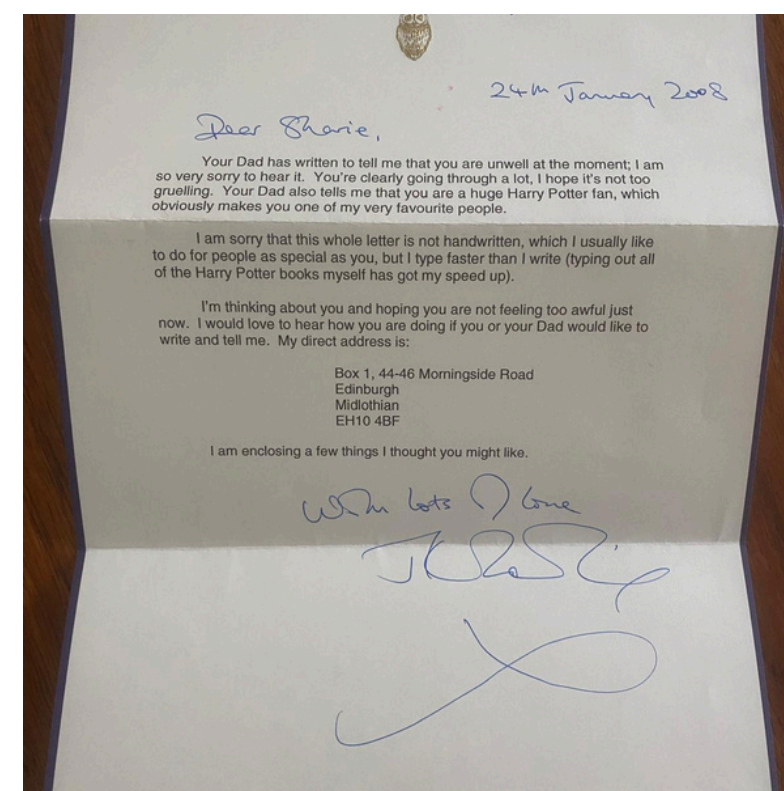 24th January 2008
Dear Sharie,
Your Dad has written to tell me that you are unwell at the moment; I am
so very sorry to hear it. You're clearly going through a lot, I hope it's not too
gruelling. Your Dad also tells me that you are a huge Harry Potter fan, which
obviously makes you one of my very favourite people.
I am sorry that this whole letter is not handwritten, which I usually like
to do for people as special as you, but I type faster than I write (typing out all
of the Harry Potter books myself has got my speed up).
I'm thinking about you and hoping you are not feeling too awful just
now. I would love to hear how you are doing if you or your Dad would like to
write and tell me. My direct address is:
Box 1, 44-46 Morningside Road
Edinburgh
Midlothian
EH10 4BF
I am enclosing a few things I thought you might like.
With lots of love
JKRowling
x